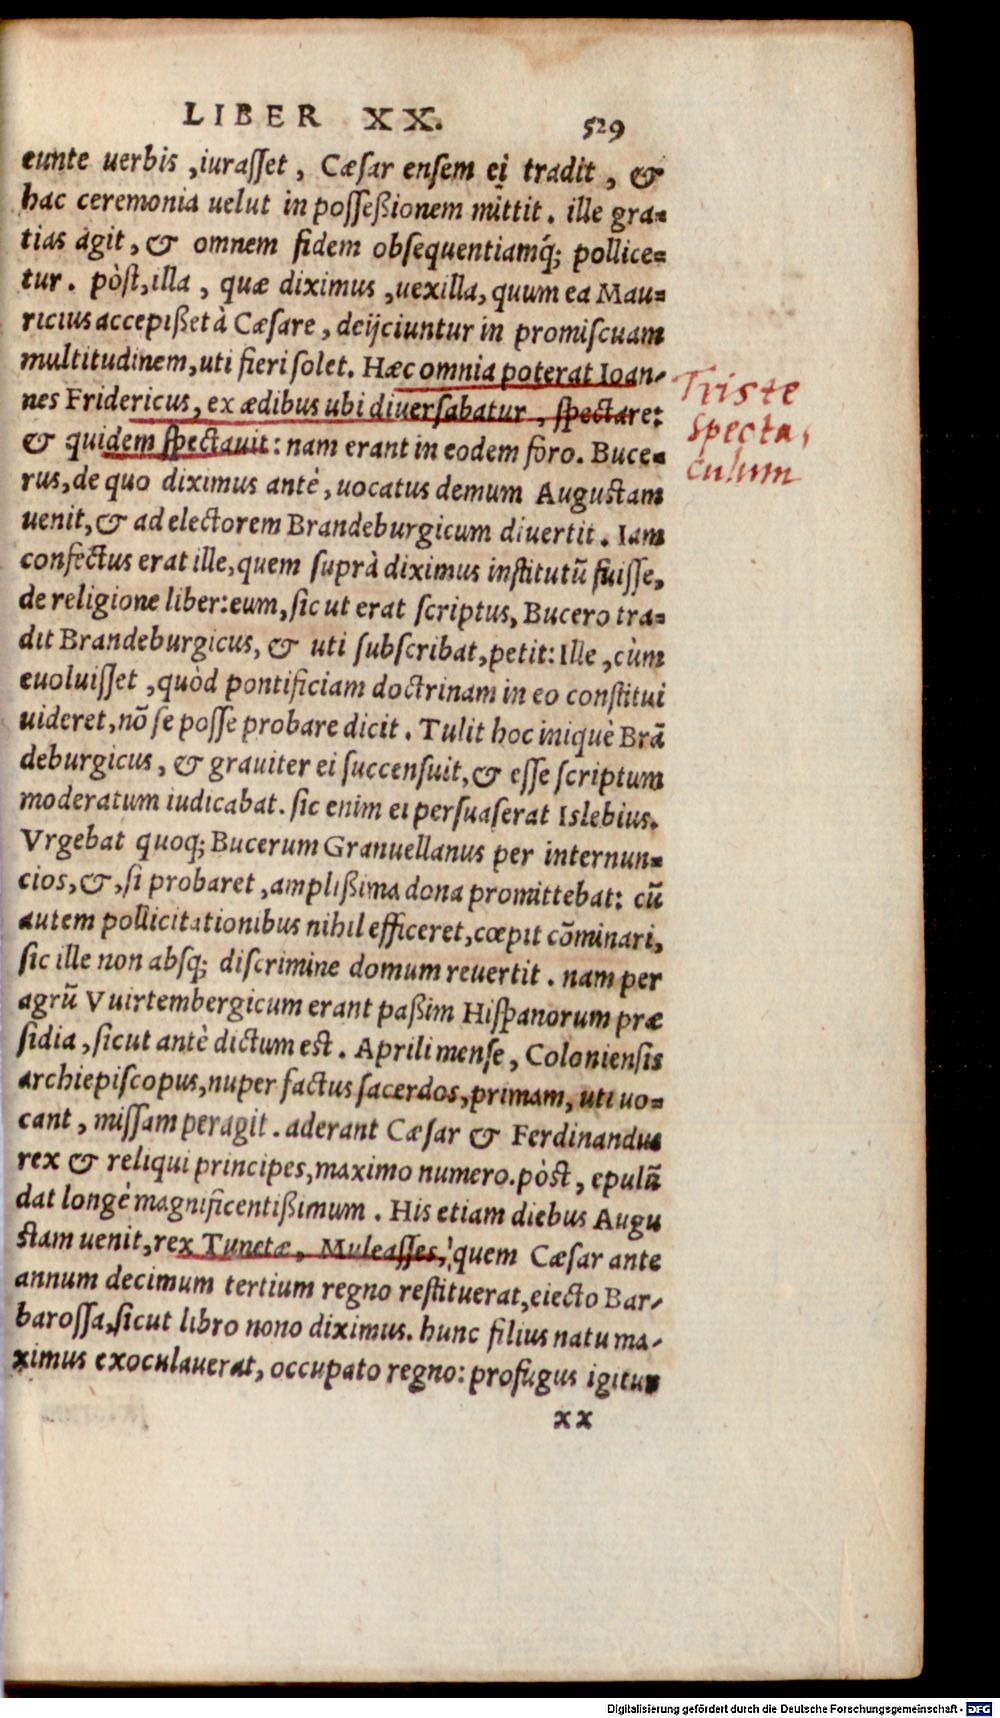 LIBER XX. 529
eunte uerbis, iuraſſet, Cæſar enſem ei tradit, &
hac ceremonia uelut in poſſeßionem mittit. ille gra=
tias agit, & omnem fidem obſequentiamq́; pollice=
tur. pòſt, illa, quæ diximus, uexilla, quum ea Mau=
ricius accepißet à Cæſare, deijciuntur in promiſcuam
multitudinem, uti fieri ſolet. Hæc omnia poterat Ioan-
nes Fridericus, ex ædibus ubi diuerſabatur, ſpectare:
& quidem ſpectauit: nam erant in eodem foro. Buce=
rus, de quo diximus antè, uocatus demum Auguſtam
uenit, & ad electorem Brandeburgicum diuertit. Iam
confectus erat ille, quem ſuprà diximus inſtitutū fuiſſe,
de religione liber: eum, ſic ut erat ſcriptus, Bucero tra=
dit Brandeburgicus, & uti ſubſcribat, petit: Ille, cùm
euoluiſſet, quòd pontificiam doctrinam in eo conſtitui
uideret, nō ſe poſſe probare dicit. Tulit hoc iniquè Brā
deburgicus, & grauiter ei ſuccenſuit, & eſſe ſcriptum
moderatum iudicabat. ſic enim ei perſuaſerat Islebius.
Vrgebat quoq; Bucerum Granuellanus per internun=
cios, &, ſi probaret, amplißima dona promittebat: cū
autem pollicitationibus nihil efficeret, cœpit cōminari,
ſic ille non abſq; diſcrimine domum reuertit. nam per
agrū Vuirtembergicum erant paßim Hiſpanorum præ
ſidia, ſicut antè dictum est. Aprili menſe, Colonienſis
archiepiſcopus, nuper factus ſacerdos, primam, uti uo=
cant, miſſam peragit. aderant Cæſar & Ferdinandus
rex & reliqui principes, maximo numero. pòst, epulū
dat longè magnificentißimum. His etiam diebus Augu
ſtam uenit, rex Tunetæ, Muleaſſes, quem Cæſar ante
annum decimum tertium regno reſtituerat, eiecto Bar-
baroſſa, ſicut libro nono diximus. hunc filius natu ma-
ximus exoculauerat, occupato regno: profugus igitur
xx
Triste
specta,
culum
Digitalisierung gefördert durch die Deutsche Forschungsgemeinschaft - DFG